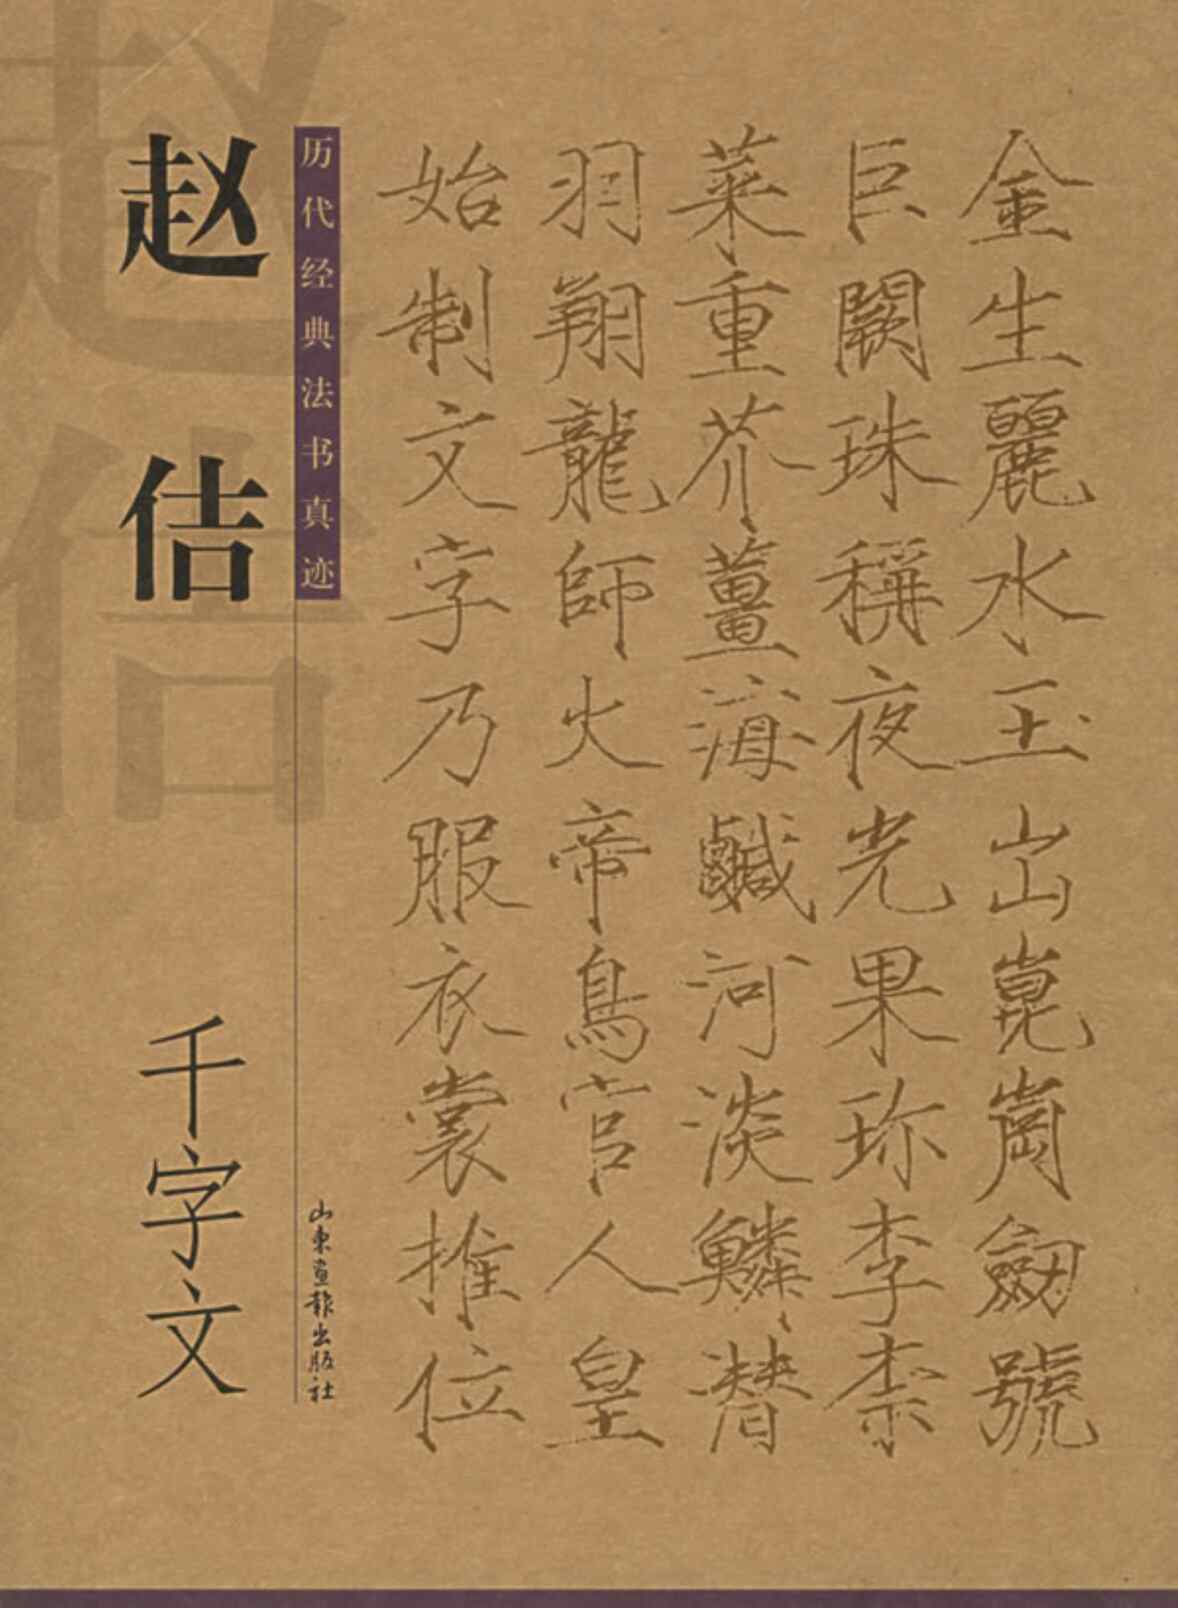 金生麗水玉出崑崗劒號
巨闕珠稱夜光果珎李柰
菜重芥薑海鹹河淡鱗潜
羽翔龍師火帝鳥官人皇
始制文字乃服衣裳推位
历代经典法书真迹
山東画报出版社
赵佶
千字文
赵佶